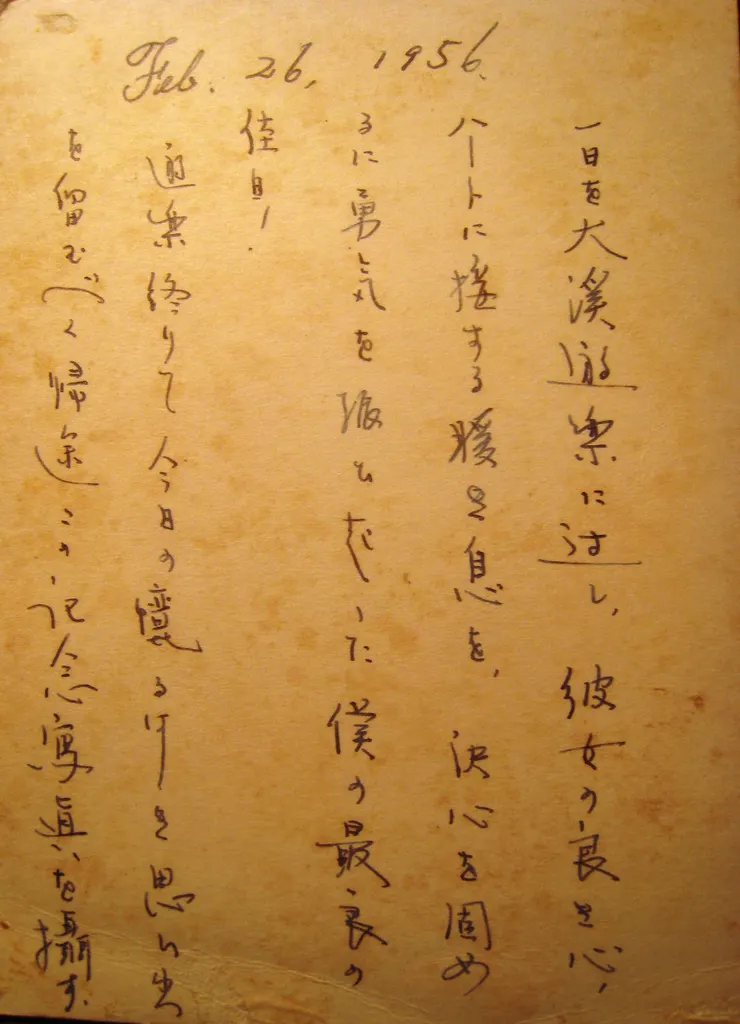 Feb. 26, 1956.
一日を大溪遊楽に过し、彼女の良き心、
ハートに接する暖き息を、決心を固め
るに勇気を振ひ起した僕の最良の
佳日!
遊楽終りて今日の輝るけき思ら出
を留むべく帰途この記念寫眞を攝す。